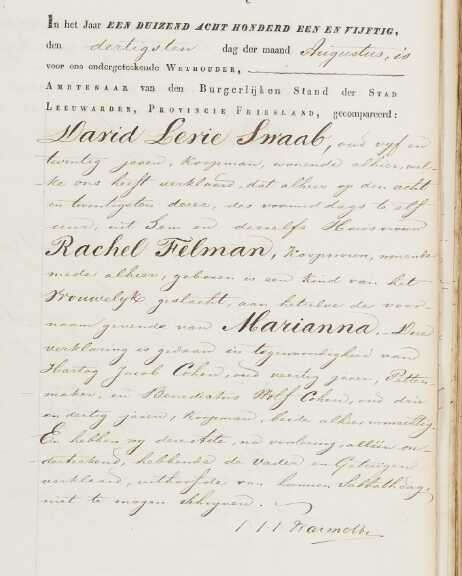 In het Jaar EEN DUIZEND ACHT HONDERD EEN EN VIJFTIG,
den dertigsten dag der maand Augustus, is
voor ons ondergeteekende WETHOUDER,
AMBTENAAR van den Burgerlijken Stand der STAD
LEEUWARDEN, PROVINCIE FRIESLAND, gecompareerd:
David Levie Swaab, oud vyf en
twintig jaren, Koopman, wonende alhier, wel-
ke ons heeft verklaard, dat alhier op den acht
en twintigsten dezer, des voormiddags te elf
uren, uit hem en deszelfs Huisvrouw
Rachel Felman, Koopvrouw, wonende
mede alhier, geboren is een kind van het
Vrouwelyk geslacht, aan hetzelve de voor-
naam gevende van Marianna. Deze
verklaring is gedaan in tegenwoordigheid van
Hartog Jacob Cohen, oud veertig jaren,
maker, en Benedictus Wolf Cohen, oud drie
en dertig jaren, Koopman, beide alhier woonachtig.
En hebben wy deze Acte, na voorlezing, alléén on-
derteekend, hebbende de vader en Getuigen
verklaard, uithoofde van hunnen Sabbathdag,
niet te mogen schryven.